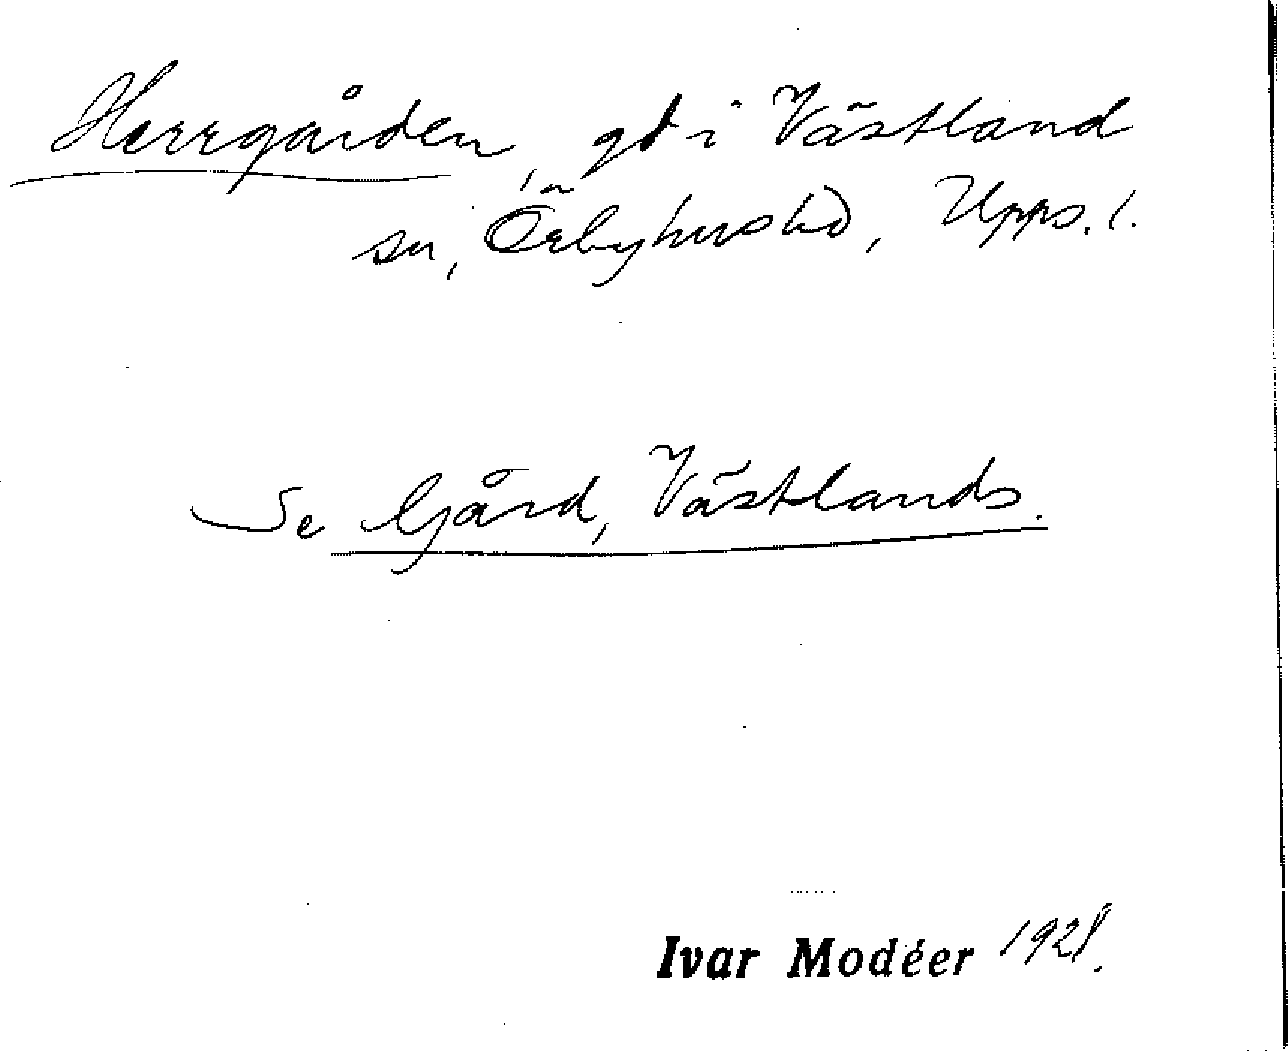 Herrgården, gd i Västland
sn, Örbyhus hd, Upps. l.
Se Gård, Västlands.
Ivar Modéer 1928.